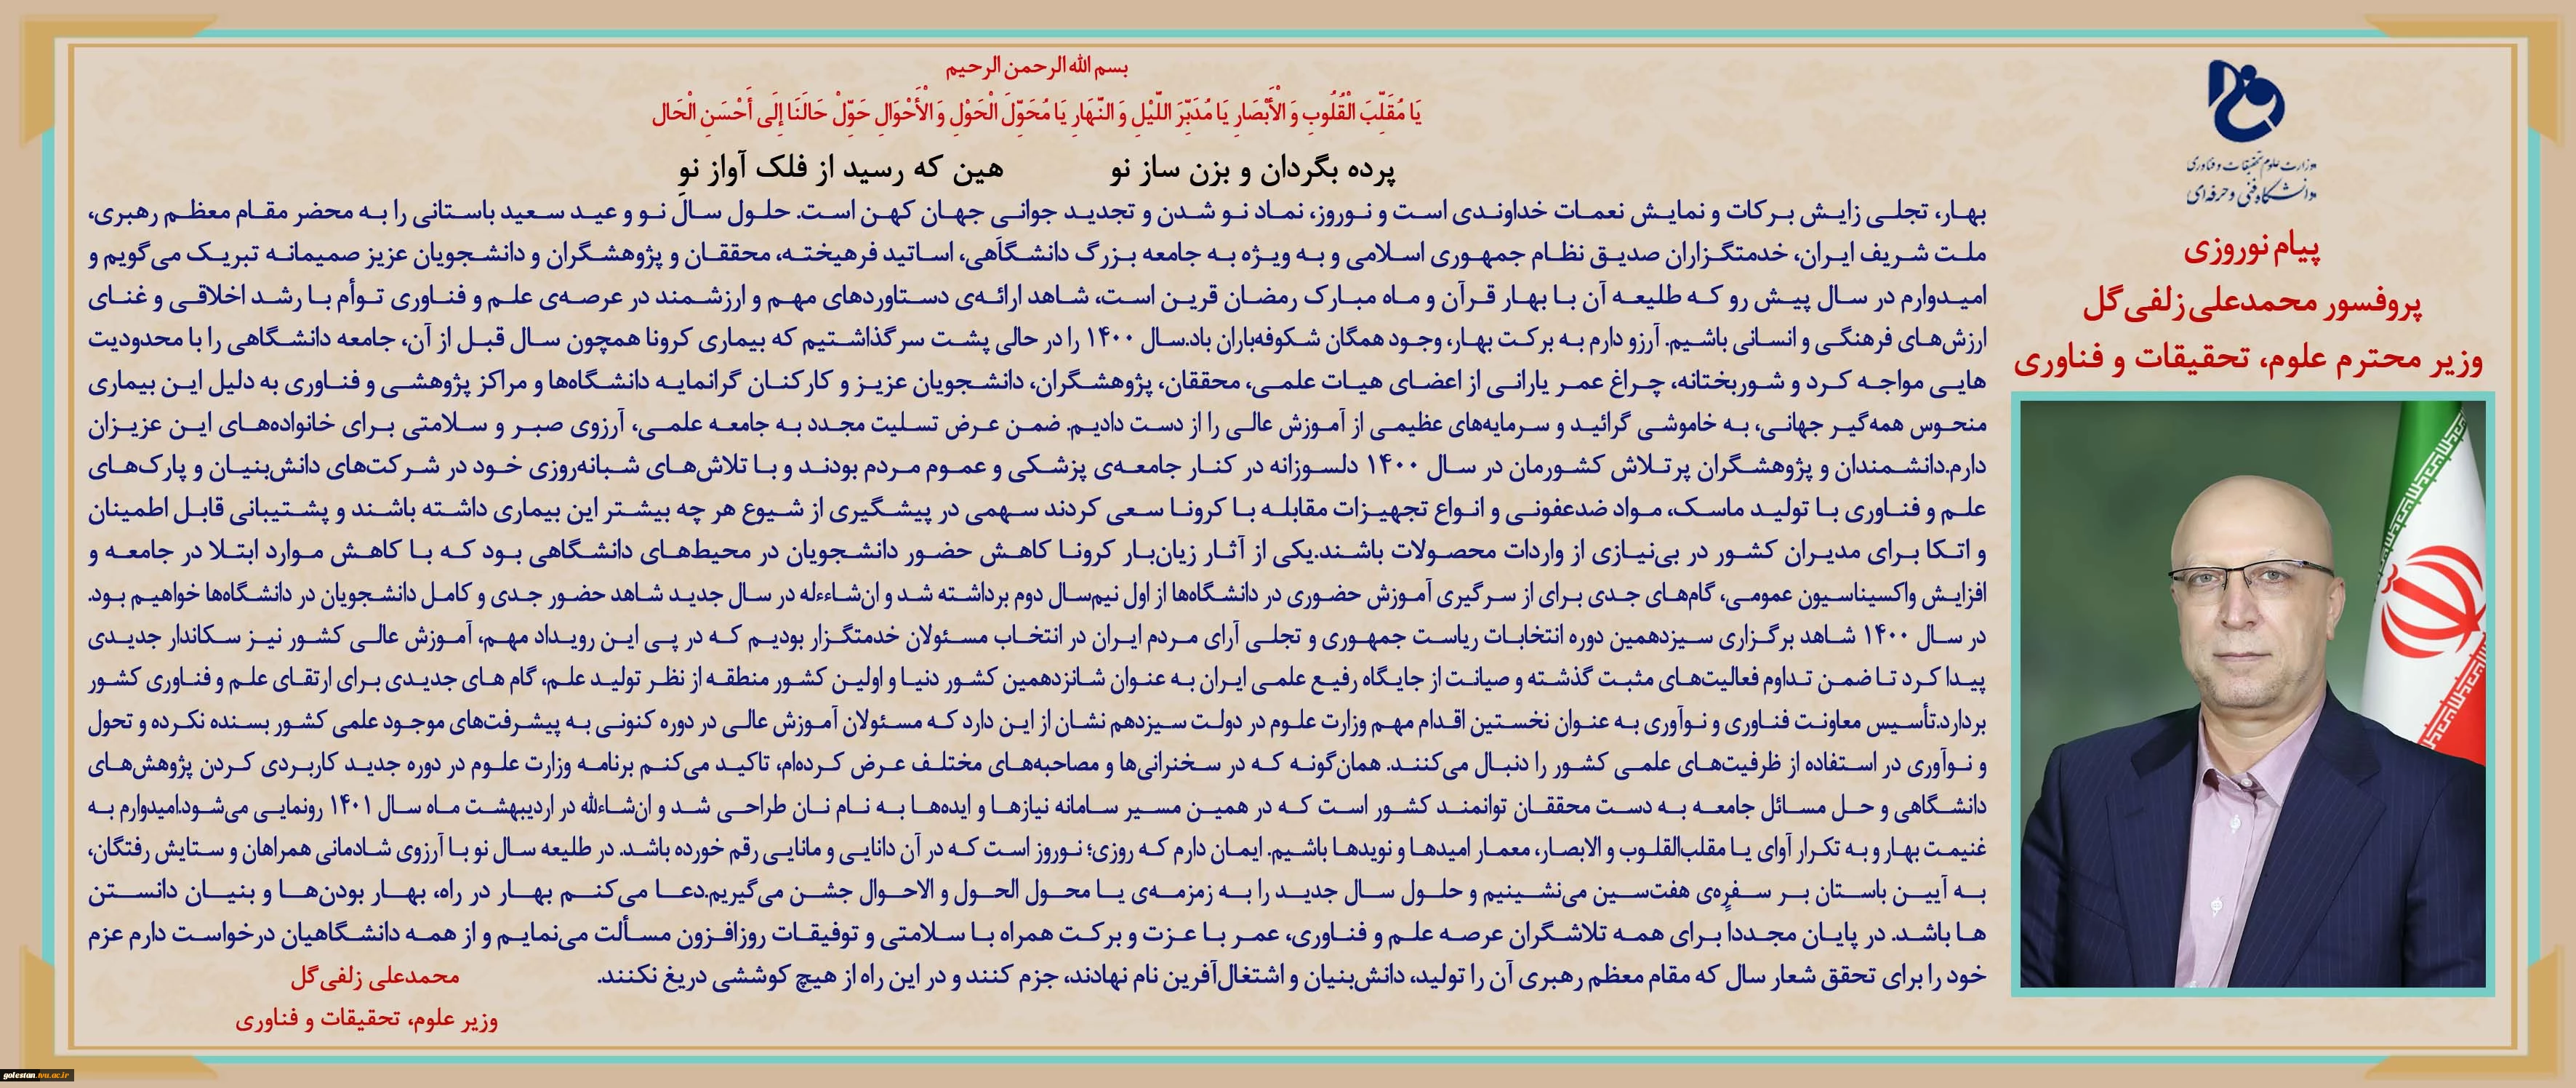 بسم الله الرحمن الرحیم
یَا مُقَلِّبَ الْقُلُوبِ وَ الْأَبْصَارِ یَا مُدَبِّرَ اللَّیْلِ وَ النَّهَارِ یَا مُحَوِّلَ الْحَوْلِ وَ الْأَحْوَالِ حَوِّلْ حَالَنَا إِلَى أَحْسَنِ الْحَال
پرده بگردان و بزن ساز نو هین که رسید از فلک آواز نو
وزارت علوم تحقیقات و فناوری
دانشگاه فنی و حرفه‌ای
پیام نوروزی
پروفسور محمدعلی زلفی‌گل
وزیر محترم علوم، تحقیقات و فناوری
بهار، تجلی زایش برکات و نمایش نعمات خداوندی است و نوروز، نماد نو شدن و تجدید جوانی جهان کهن است. حلول سال نو و عید سعید باستانی را به محضر مقام معظم رهبری،
ملت شریف ایران، خدمتگزاران صدیق نظام جمهوری اسلامی و به ویژه به جامعه بزرگ دانشگاهی، اساتید فرهیخته، محققان و پژوهشگران و دانشجویان عزیز صمیمانه تبریک می‌گویم و
امیدوارم در سال پیش رو که طلیعه آن با بهار قرآن و ماه مبارک رمضان قرین است، شاهد ارائه‌ی دستاوردهای مهم و ارزشمند در عرصه‌ی علم و فناوری توأم با رشد اخلاقی و غنای
ارزش‌های فرهنگی و انسانی باشیم. آرزو دارم به برکت بهار، وجود همگان شکوفه‌باران باد.سال ۱۴۰۰ را در حالی پشت سر گذاشتیم که بیماری کرونا همچون سال قبل از آن، جامعه دانشگاهی را با محدودیت
هایی مواجه کرد و شوربختانه، چراغ عمر یارانی از اعضای هیات علمی، محققان، پژوهشگران، دانشجویان عزیز و کارکنان گرانمایه دانشگاه‌ها و مراکز پژوهشی و فناوری به دلیل این بیماری
منحوس همه‌گیر جهانی، به خاموشی گرائید و سرمایه‌های عظیمی از آموزش عالی را از دست دادیم. ضمن عرض تسلیت مجدد به جامعه علمی، آرزوی صبر و سلامتی برای خانواده‌های این عزیزان
دارم.دانشمندان و پژوهشگران پرتلاش کشورمان در سال ۱۴۰۰ دلسوزانه در کنار جامعه‌ی پزشکی و عموم مردم بودند و با تلاش‌های شبانه‌روزی خود در شرکت‌های دانش‌بنیان و پارک‌های
علم و فناوری با تولید ماسک، مواد ضدعفونی و انواع تجهیزات مقابله با کرونا سعی کردند سهمی در پیشگیری از شیوع هر چه بیشتر این بیماری داشته باشند و پشتیبانی قابل اطمینان
و اتکا برای مدیران کشور در بی‌نیازی از واردات محصولات باشند.یکی از آثار زیان‌بار کرونا کاهش حضور دانشجویان در محیط‌های دانشگاهی بود که با کاهش موارد ابتلا در جامعه و
افزایش واکسیناسیون عمومی، گام‌های جدی برای از سرگیری آموزش حضوری در دانشگاه‌ها از اول نیم‌سال دوم برداشته شد و ان‌شاءءله در سال جدید شاهد حضور جدی و کامل دانشجویان در دانشگاه‌ها خواهیم بود.
در سال ۱۴۰۰ شاهد برگزاری سیزدهمین دوره انتخابات ریاست جمهوری و تجلی آرای مردم ایران در انتخاب مسئولان خدمتگزار بودیم که در پی این رویداد مهم، آموزش عالی کشور نیز سکاندار جدیدی
پیدا کرد تا ضمن تداوم فعالیت‌های مثبت گذشته و صیانت از جایگاه رفیع علمی ایران به عنوان شانزدهمین کشور دنیا و اولین کشور منطقه از نظر تولید علم، گام های جدیدی برای ارتقای علم و فناوری کشور
بردارد.تأسیس معاونت فناوری و نوآوری به عنوان نخستین اقدام مهم وزارت علوم در دولت سیزدهم نشان از این دارد که مسئولان آموزش عالی در دوره کنونی به پیشرفت‌های موجود علمی کشور بسنده نکرده و تحول
و نوآوری در استفاده از ظرفیت‌های علمی کشور را دنبال می‌کنند. همان‌گونه که در سخنرانی‌ها و مصاحبه‌های مختلف عرض کرده‌ام، تاکید می‌کنم برنامه وزارت علوم در دوره جدید کاربردی کردن پژوهش‌های
دانشگاهی و حل مسائل جامعه به دست محققان توانمند کشور است که در همین مسیر سامانه نیازها و ایده‌ها به نام نان طراحی شد و ان‌شاءالله در اردیبهشت ماه سال ۱۴۰۱ رونمایی می‌شود.امیدوارم به
غنیمت بهار و به تکرار آوای یا مقلب‌القلوب و الابصار، معمار امیدها و نویدها باشیم. ایمان دارم که روزی؛ نوروز است که در آن دانایی و مانایی رقم خورده باشد. در طلیعه سال نو با آرزوی شادمانی همراهان و ستایش رفتگان،
به آیین باستان بر سفره‌ی هفت‌سین می‌نشینیم و حلول سال جدید را به زمزمه‌ی یا محول الحول و الاحوال جشن می‌گیریم.دعا می‌کنم بهار در راه، بهار بودن‌ها و بنیان دانستن
ها باشد. در پایان مجددا برای همه تلاشگران عرصه علم و فناوری، عمر با عزت و برکت همراه با سلامتی و توفیقات روزافزون مسألت می‌نمایم و از همه دانشگاهیان درخواست دارم عزم
خود را برای تحقق شعار سال که مقام معظم رهبری آن را تولید، دانش‌بنیان و اشتغال‌آفرین نام نهادند، جزم کنند و در این راه از هیچ کوششی دریغ نکنند.
محمدعلی زلفی‌گل
وزیر علوم، تحقیقات و فناوری
golestan.tvu.ac.ir